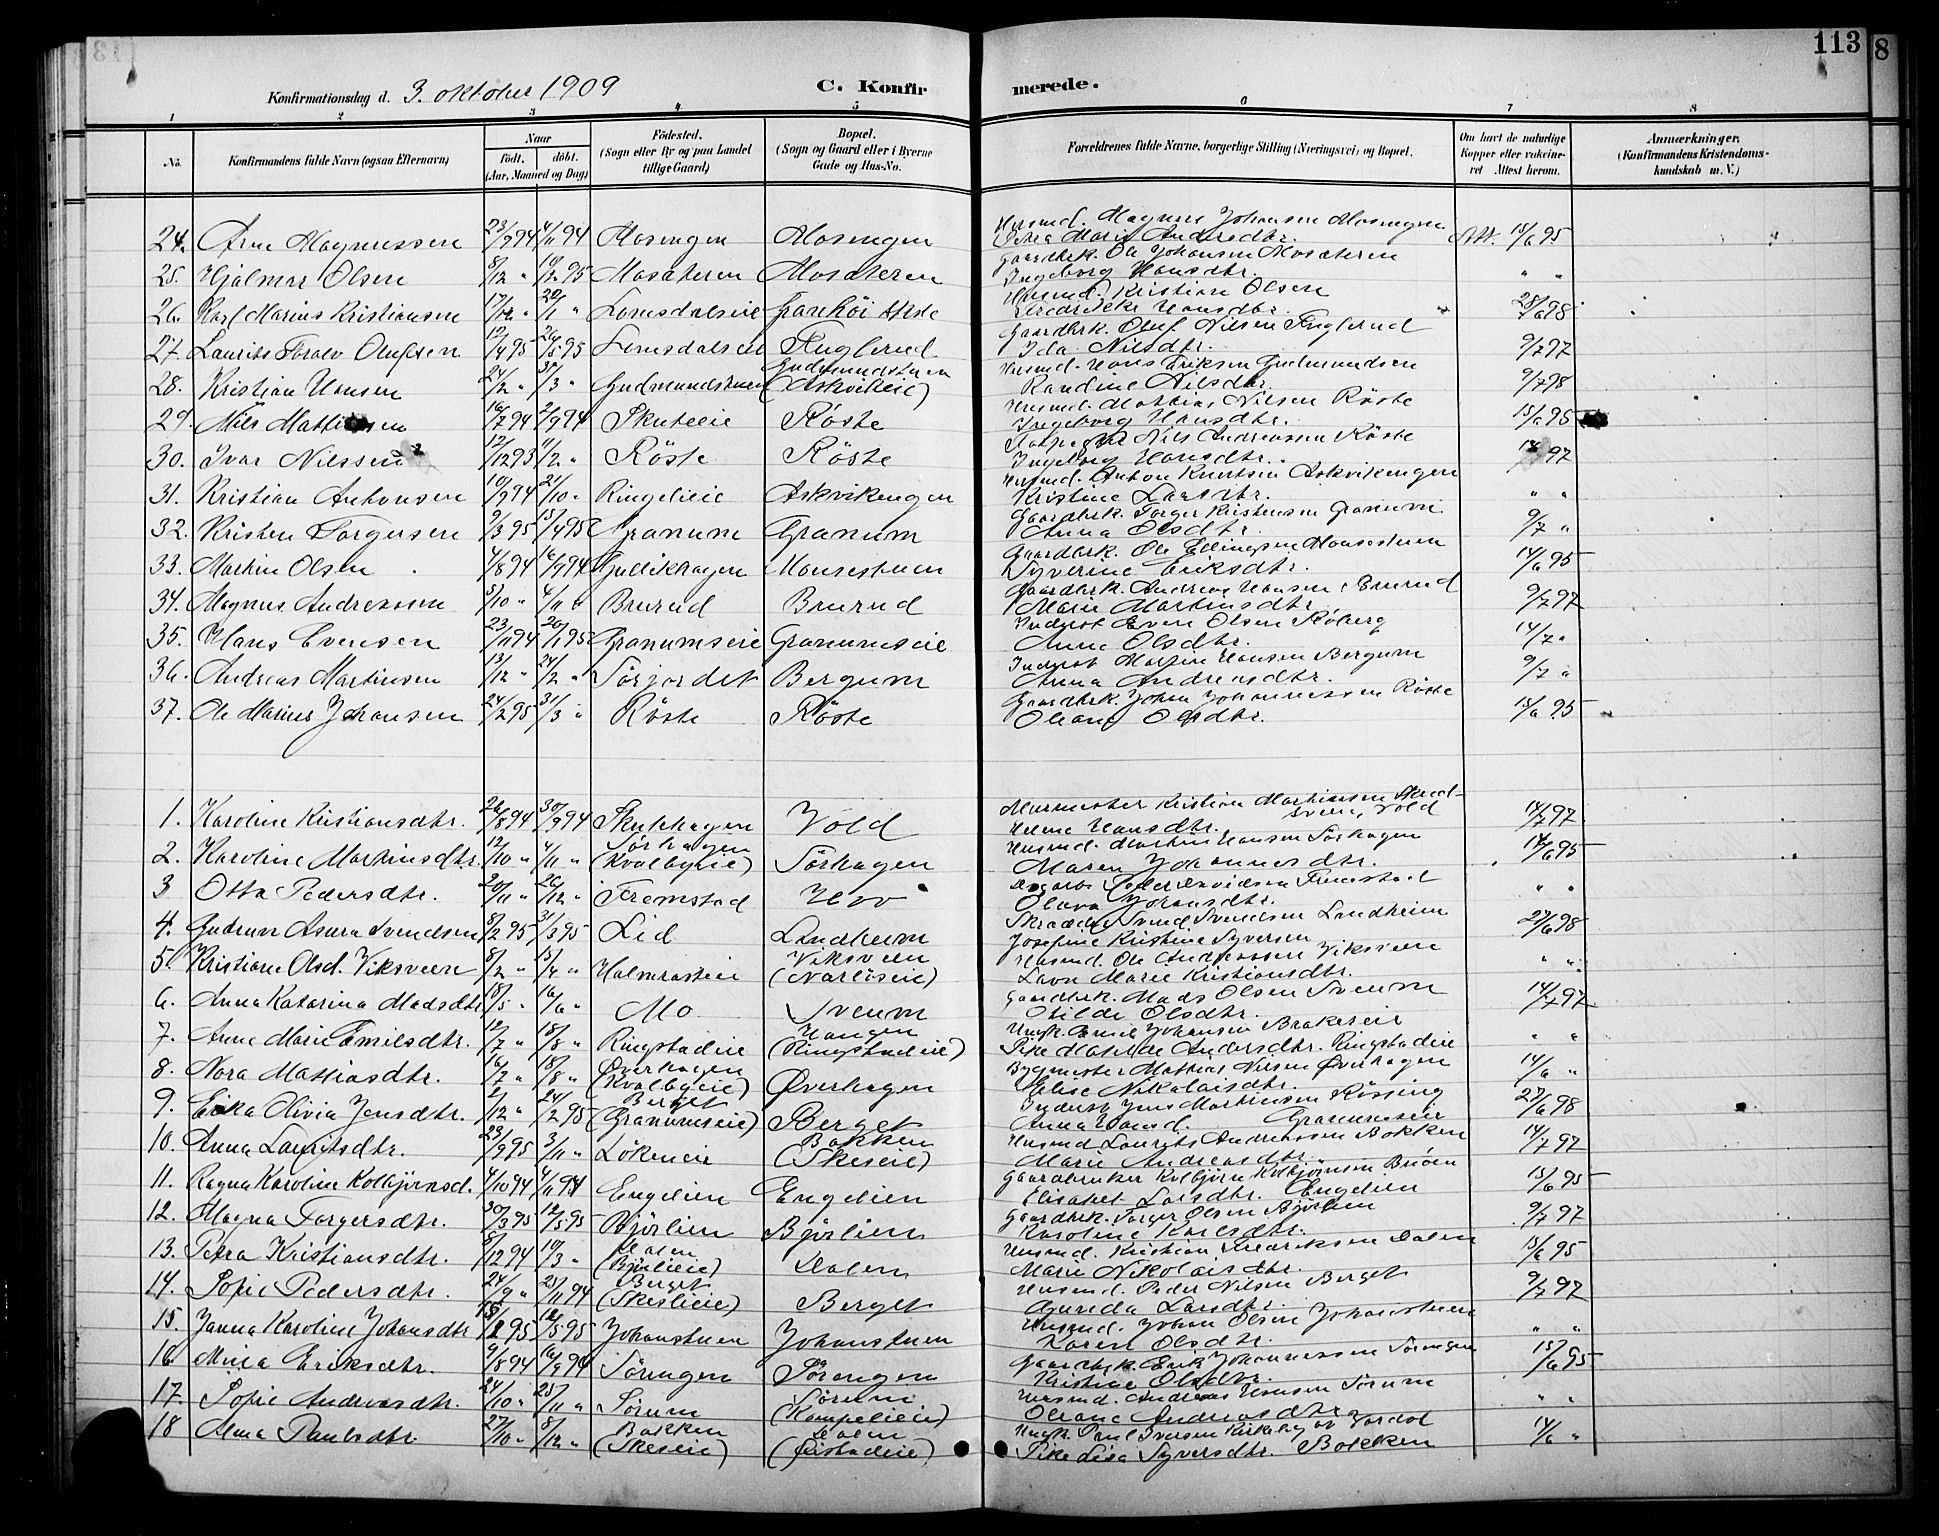 113
8
Konfirmationsdag d. 3. oktober 1909
C. Konfirmerede.
1 2 3 4 5 6 7 8
No. Konfirmandens fulde Navn (ogsaa Efternavn) Naar født, døbt. (Aar, Maaned og Dag) Fødested. (Sogn eller By og paa Landet tillige Gaard) Bopæl. (Sogn og Gaard eller i Byerne Gade og Hus-No. Forældrenes fulde Navne, borgerlige Stilling (Næringsvei) og Bopæl. Om havt de naturlige Kopper eller vaccineret Attest herom. Anmærkninger. (Konfirmandens Kristendomskundskab m. V.)
24. Arne Magnussen 23/9 94 4/11 94 Mosengen Mosengen Husmd. Magnus Johansen Mosengen Petra Marie Andersdtr. Att. 15/6 95
25. Hjalmar Olsen 8/12 " 10/2 95 Mosateren Mosateren Gaardbrk. Ole Johansen Mosateren Ingeborg Hansdtr. " "
26. Karl Marius Kristiansen 17/12 " 20/1 " Lomsdalseie Husmd. Kristian Olsen Fredrikke Hansdtr. 28/6 98
27. Laurits Torolv Olufsen 12/4 95 26/5 95 Lomsdalseie Fuglerud Gaardbrk. Oluf Nilsen Fuglerud Ida Nilsdtr. 9/7 97
28. Kristian Hansen 24/2 " 31/3 " Gudmundstuen Gudmundstuen (Askvikeie) Husmd. Hans Eriksen Gudmundsen Randine Nilsdtr. 9/7 98
29. Nils Mathisen 16/7 94 2/9 94 Skuteeie Røste Husmd. Mathias Nilsen Røste Ingeborg Hansdtr. 15/6 95
30. Ivar Nilssen 12/12 93 11/2 " Röste Röste Nils Andreassen Röste Ingeborg Hansdtr. 97
31. Kristian Antonsen 10/9 94 21/10 " Ringelieie Askvikengen Husmd. Anton Knutsen Askvikengen Kristine Larsdtr. " "
32. Kristen Torgersen 9/3 95 15/4 95 Granum Granum Gaardbrk. Torger Kristensen Granum Anna Olsdtr. 9/7 "
33. Martin Olsen 4/8 94 16/9 94 Gullikhagen Monsestuen Gaardbrk. Ole Ellingsen Monsestuen Syverine Eriksdtr. 14/6 95
34. Magnus Andreassen 5/10 " 4/11 " Brurud Brurud Gaardbrk. Andreas Hansen Brurud Marie Martinsdtr. 9/7 97
35. Hans Evensen 23/11 94 20/1 95 Granumseie Granumseie Inderst Even Olsen Röberg Anne Olsdtr. 14/7 "
36. Andreas Martinsen 13/12 " 24/2 " Sörjordet Bergum Inderst Martin Hansen Bergum Anna Andreasdtr. 9/7 "
37. Ole Marius Johansen 24/2 95 31/3 " Röste Röste Gaardbrk. Johan Johannessen Röste Oleane Olsdtr. 15/6 95
1. Karoline Kristiansdtr. 26/8 94 30/9 94 Skuthagen Vold Murmester Kristian Martinsen Vold Helene Hansdtr. 14/7 97
2. Karoline Martinsdtr. 12/10 " 4/11 " Sörhagen (Kvalbyeie) Sörhagen Husmd. Martin Hansen Sörhagen Maren Johannesdtr. 14/6 95
3 Otta Pedersdtr. 20/11 " 26/12 " Fremstad Hov Peder Davidsen Fremstad Olava Johansdtr. " "
4. Gudrun Asora Svendsen 8/2 95 31/3 95 Lid Lindheim Skrædder Svend Svendsen Lindheim Josefine Kristine Syversen 27/6 98
5. Kristiane Olsd. Viksveen 8/2 " 15/4 " Holmrasteie Viksveen (Narlöseie) Husmd. Ole Andreassen Viksveen Lava Marie Kristiansdtr. " "
6. Anna Katarina Madsdtr. 18/5 " 16/6 " Mo Sveum Gaardbrk. Mads Olsen Sveum Otilde Olsdtr. 14/7 97
7. Anne Marie Emilsdtr. 12/7 " 18/8 " Ringstadeie Haugen (Ringstadeie) Ungk. Emil Johansen Brakereie Pike Matilde Andersdtr. Ringstadeie " "
8. Nora Mattiasdtr. 16/7 " 18/8 " Øverhagen (Kvalbyeie) Øverhagen Bygmester Mathias Nilsen Øverhagen Elise Nikolaisdtr. 14/6 "
9. Erika Olivia Jensdtr. 2/12 " 24/2 95 Berget (Granumseie) Berget Inderst Jens Martinsen Rössing Anna Hansd. Granumseie 27/6 98
10. Anna Lauritsdtr. 23/9 95 3/11 " Lökeneie Bakken (Skeseie) Husmd Laurits Andreassen Bakken Marie Andreasdtr. 14/7 97
11. Ragna Karoline Kolbjørnsd. 4/10 94 4/11 94 Engelien Engelien Gaardbruker Kolbjörn Kolbjørnsen Bruøen Elisabet Larsdtr. Engelien 15/6 95
12. Magna Torgersdtr. 30/3 95 12/5 95 Bjørlien Bjørlien Gaardbrk. Torger Olsen Bjørlien Karoline Karlsdtr. 9/7 97
13. Petra Kristiansdtr. 8/12 94 10/3 " Dalen (Bjørlieie) Dalen Husmd. Kristian Fredriksen Dalen Marie Nikolaisdtr. 15/6 95
14. Sofie Pedersdtr. 24/9 " 25/11 94 Berget (Skeslieie) Berget Husmd. Peder Nilsen Berget Gureda Larsdtr. 9/7 97
15. Janna Karoline Johansdtr 15/2 95 12/5 95 Johanstuen Johanstuen Husmd. Johan Olsen Johanstuen Karen Olsdtr. " "
16. Mina Eriksdtr. 9/8 94 16/9 94 Sörengen Sörengen Gaardbrk. Erik Johannessen Sörengen Kristine Olsdtr 15/6 95
17. Sofie Andreasdtr. 24/10 " 25/11 " Sörum Sörum (Kompelieie) Husmd. Andreas Hansen Sörum Oleane Andreasdtr. " "
18 Alma Paulsdtr 27/10 " 8/12 " Bakken (Skeseie) Dalen (Fristadeie) Ungk. Paul Iversen Kirkeby av Vardal Pike Lisa Syversdtr. Bakken 14/6 "